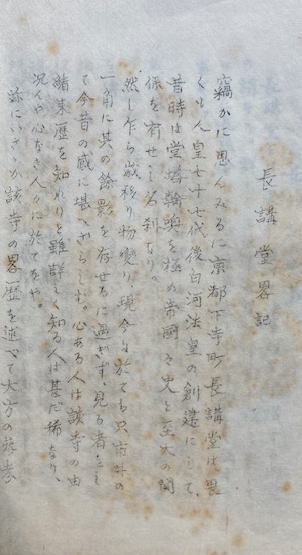 長講堂畧記
竊かに思んみるに京都下寺町長講堂は畏
くも人皇七十七代後白河法皇の創建にして、
昔時は堂塔輪奐を極め帝國々史と至大の関
係を有せし名刹なり。
然し乍ら歳移り物變り、現今に於ても只市井の
一角に其の餘影を存せるに過ぎず、見る者をし
て今昔の感に堪へざらしむ。心ある人は該寺の由
緒来歴を知れりと雖詳しく知る人は甚だ稀なり、
况んや心なき人々に於てをや。
茲にいさゝか該寺の畧歴を述べて大方の参考